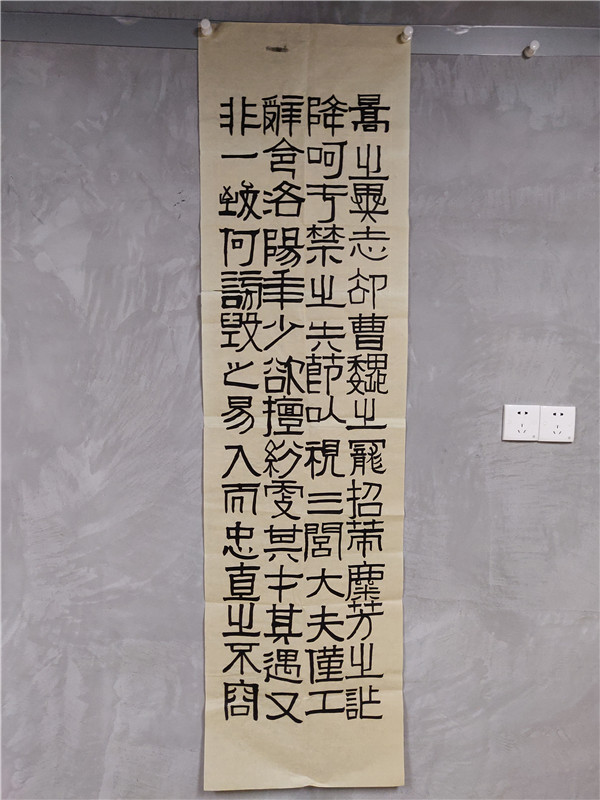 之異志卻曹魏之招糜芳之詐
降呵于禁之失節以視三閭大夫僅工
辭令洛陽年少欲擅紛更其才其遇又
非一致何謗毀之易入而忠直之不容